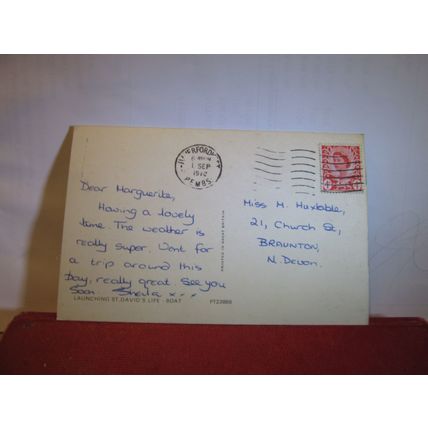 HAVERFORDWEST
1 SEP
PEMBS.
Dear Marguerite,
Having a lovely
time. The weather is
really super. Went for
a trip around this
Day, really great. See you
Soon. Sheila x
LAUNCHING ST. DAVID'S LIFE-BOAT
PT22869
PRINTED IN GREAT BRITAIN
Miss M. Huxtable,
21, Church St,
BRAUNTON,
N. Devon.